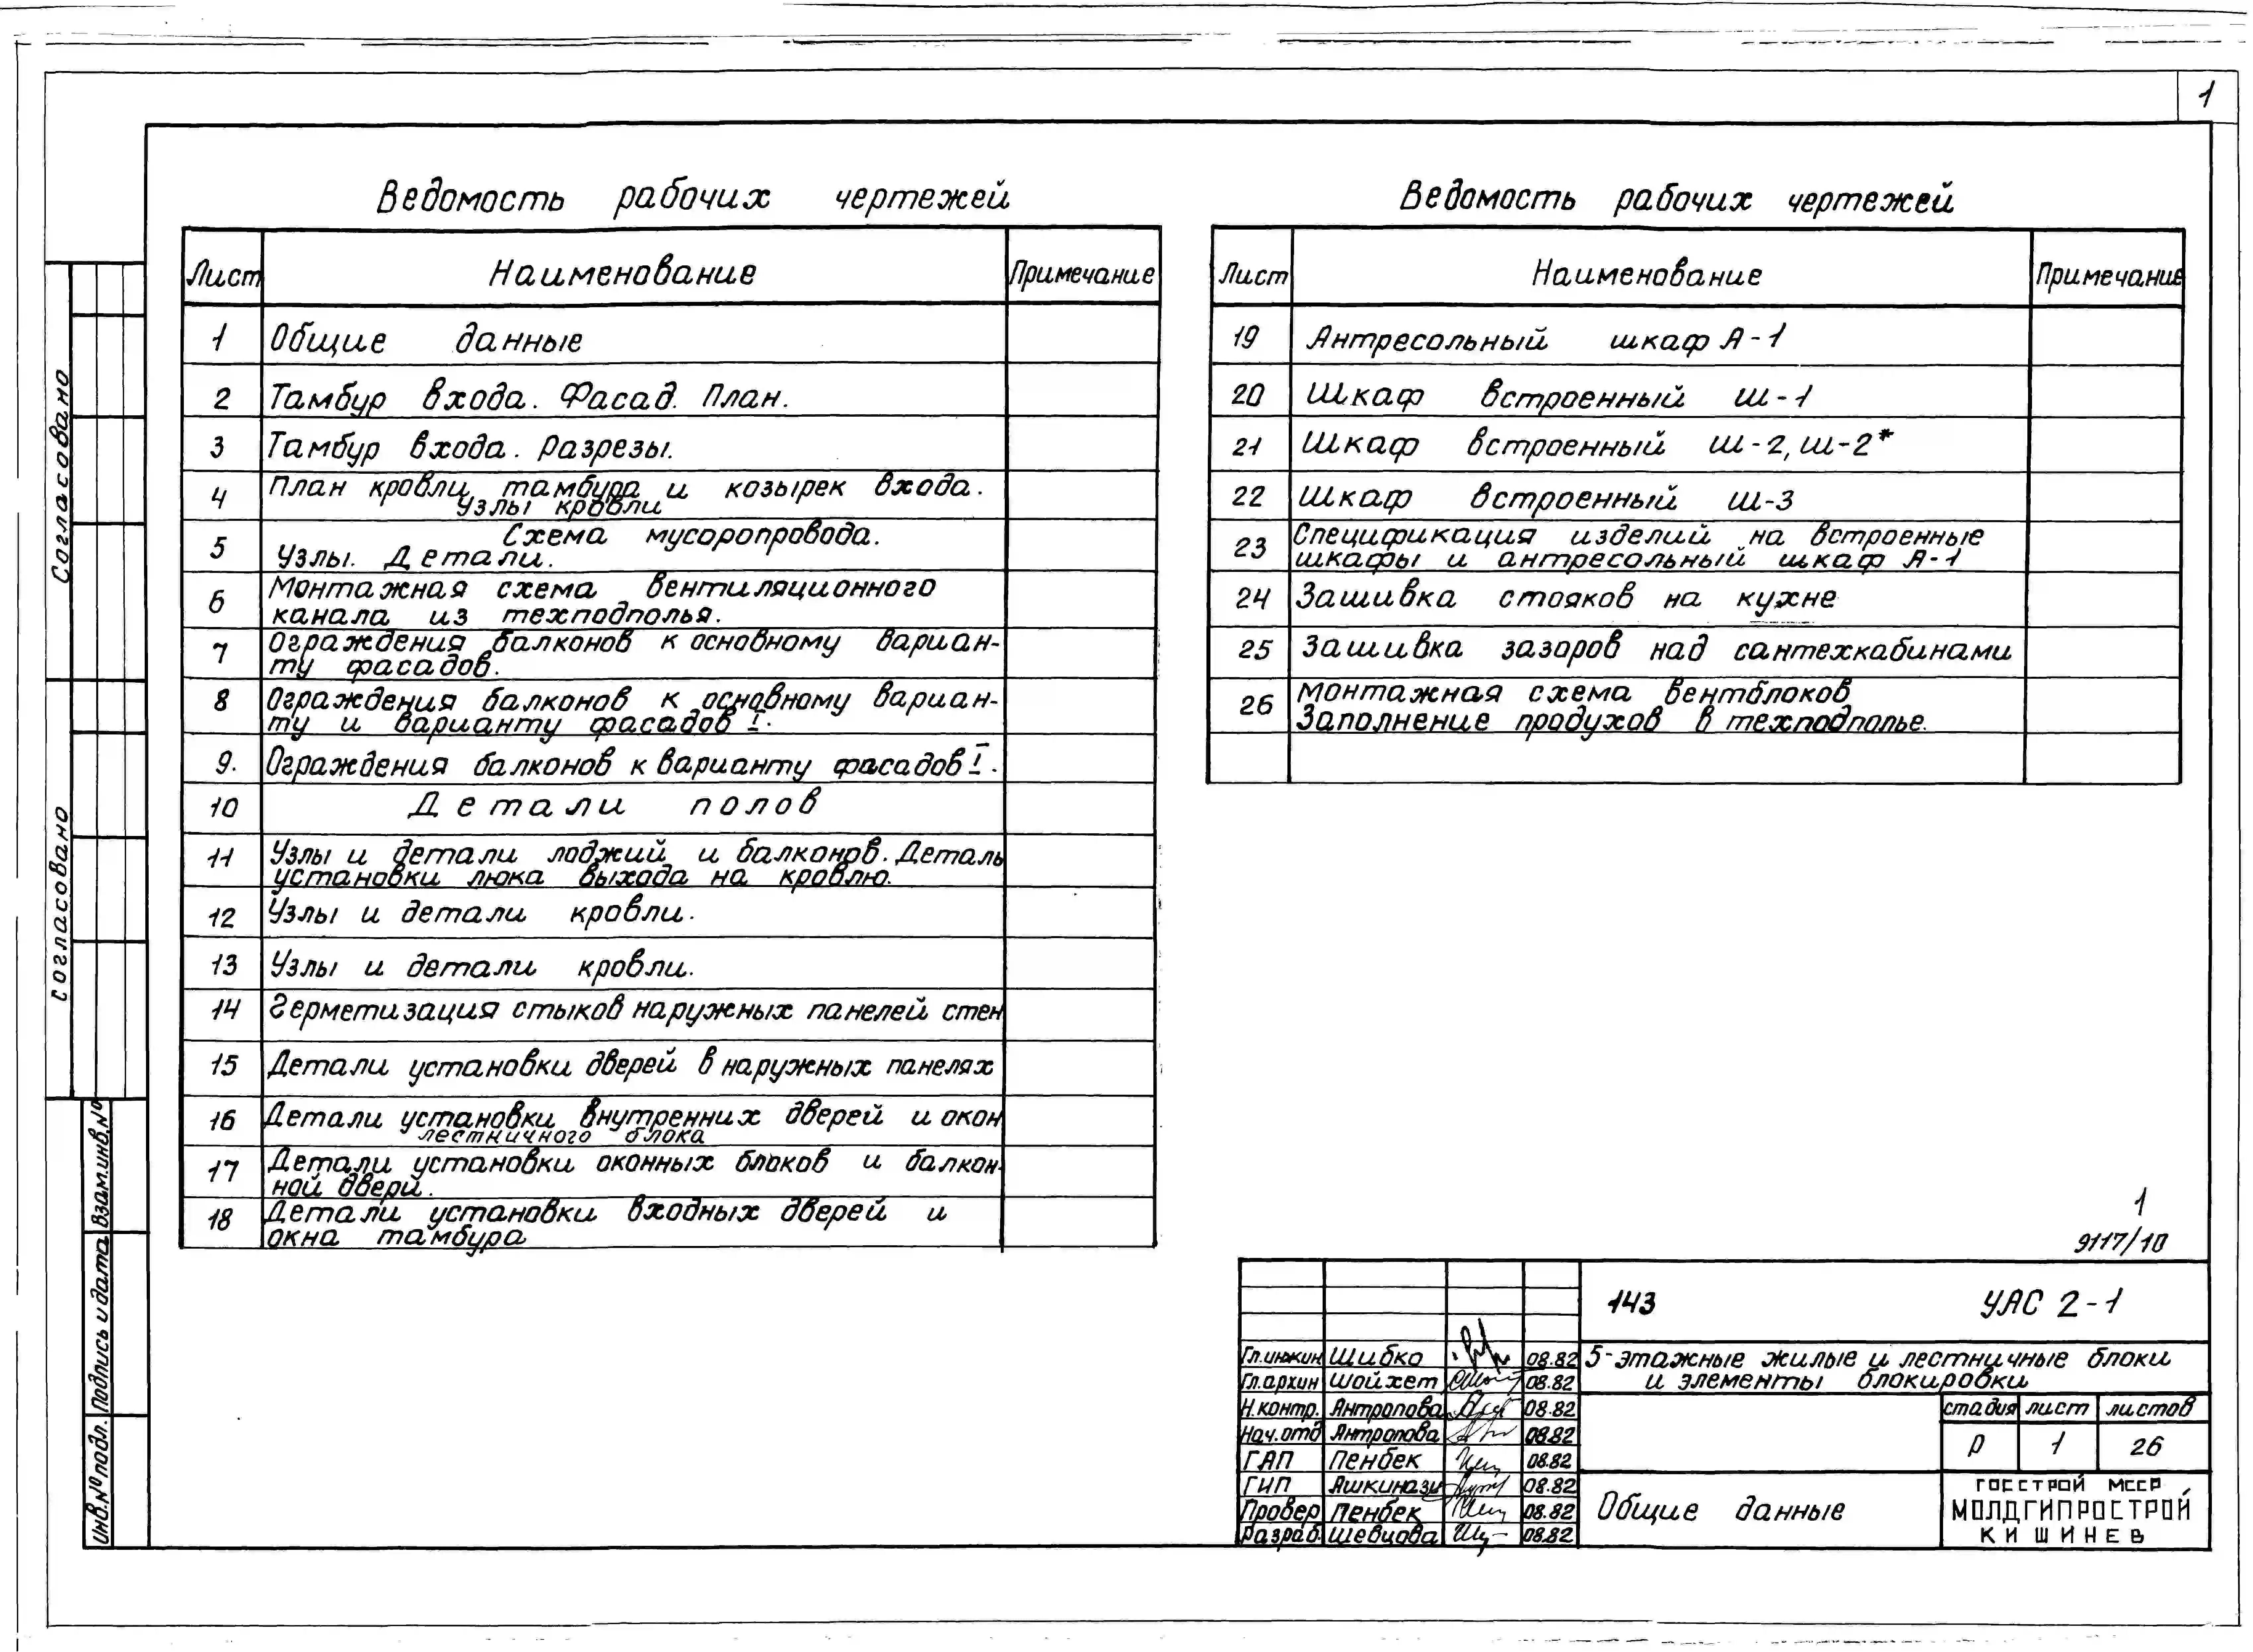 1
Ведомость рабочих чертежей
Лист Наименование Примечание
1 Общие данные
2 Тамбур входа. Фасад. План.
3 Тамбур входа. Разрезы.
4 План кровли тамбура и козырек входа.
Узлы кровли
5 Схема мусоропровода.
Узлы. Детали.
6 Монтажная схема вентиляционного
канала из техподполья.
7 Ограждения балконов к основному вариан-
ту фасадов.
8 Ограждения балконов к основному вариан-
ту и варианту фасадов I.
9. Ограждения балконов к варианту фасадов I.
10 Детали полов
11 Узлы и детали лоджий и балконов. Деталь
установки люка выхода на кровлю.
12 Узлы и детали кровли.
13 Узлы и детали кровли.
14 Герметизация стыков наружных панелей стен
15 Детали установки дверей в наружных панелях
16 Детали установки внутренних дверей и окон
лестничного блока
17 Детали установки оконных блоков и балкон-
ной двери.
18 Детали установки входных дверей и
окна тамбура
Ведомость рабочих чертежей
Лист Наименование Примечание
19 Антресольный шкаф А-1
20 Шкаф встроенный ш-1
21 Шкаф встроенный ш-2, ш-2*
22 Шкаф встроенный ш-3
23 Спецификация изделий на встроенные
шкафы и антресольный шкаф А-1
24 Зашивка стояков на кухне
25 Зашивка зазоров над сантехкабинами
26 Монтажная схема вентблоков
Заполнение продухов в техподполье.
Согласовано
согласовано
Взам.инв.№
Подпись и дата
Инв.№ подл.
1
9117/10
143 УАС 2-1
5-этажные жилые и лестничные блоки
и элементы блокировки
стадия лист листов
Р 1 26
Общие данные
ГОССТРОЙ МССР
МОЛДГИПРОСТРОЙ
КИШИНЕВ
Гл.инжин Шибко 08.82
Гл.архин Шойхет 08.82
Н.контр. Антропова 08.82
Нач.отд Антропова 08.82
ГАП Пенбек 08.82
ГИП Ашкинази 08.82
Провер Пенбек 08.82
Разраб. Шевцова 08.82